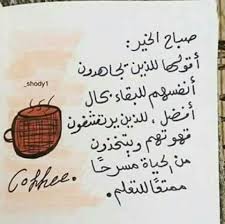 صباح الخير :
أقولها للذين يجاهدون
أنفسهم للبقاء بحال
أفضل ، للذين يرتشفون
قهوتهم ويتخذون
من الحياة مسرحًا
ممتعًا للتعلم .
_shody1
Coffee.